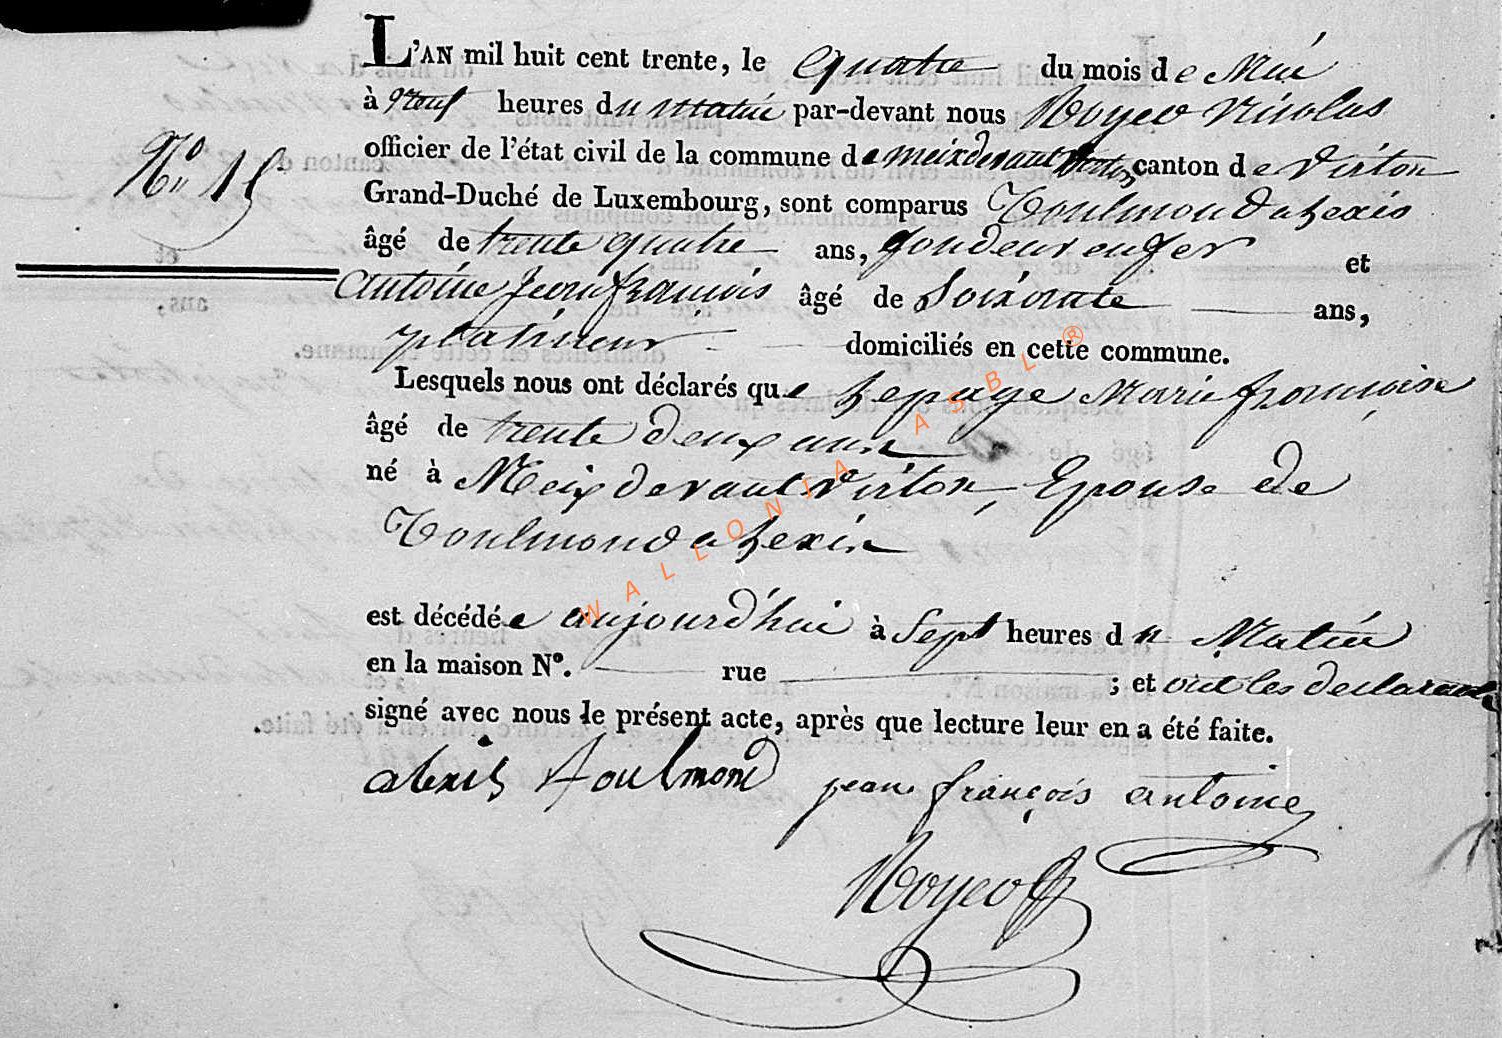 L'AN mil huit cent trente, le quatre du mois de Mai
à neuf heures du matin par-devant nous Royer Nicolas
N° 15 officier de l'état civil de la commune de meixdevant Virton canton de Virton
Grand-Duché de Luxembourg, sont comparus Toulmond alexis
âgé de trente quatre ans, fondeur en fer et
antoine Jean françois âgé de Soixante ans,
platineur domiciliés en cette commune.
Lesquels nous ont déclarés que Lepage Marie françoise
âgé de trente deux ans
né à Meix devant Virton, Epouse de
Toulmond alexis
est décédée aujourd'hui à Sept heures du Matin
en la maison N°. rue ; et ont les declarants
signé avec nous le présent acte, après que lecture leur en a été faite.
alexis toulmond jean françois antoine
Royer
WALLONIA ASBL ®